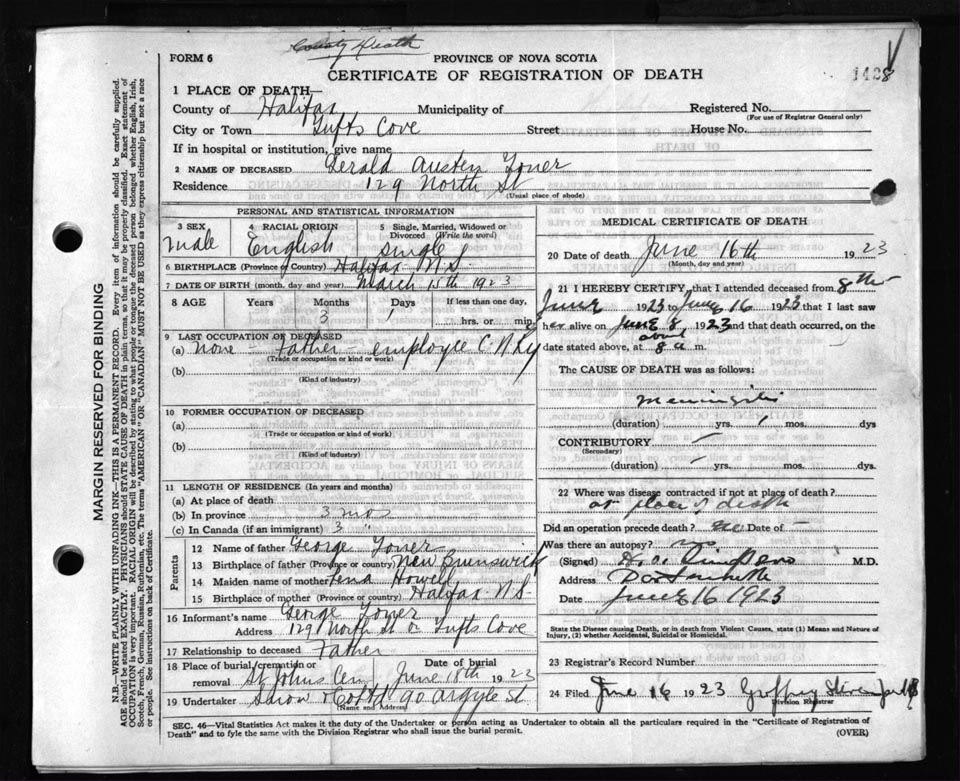 County Death
FORM 6
PROVINCE OF NOVA SCOTIA
CERTIFICATE OF REGISTRATION OF DEATH
1428
1 PLACE OF DEATH—
County of Halifax Municipality of
Registered No.
(For use of Registrar General only)
City or Town Tufts Cove Street House No.
If in hospital or institution, give name
2 NAME OF DECEASED Gerald Austen Toner
Residence 129 North St
(Usual place of abode)
PERSONAL AND STATISTICAL INFORMATION
3 SEX male
4 RACIAL ORIGIN English
5 Single, Married, Widowed or Divorced (Write the word) single
6 BIRTHPLACE (Province or Country) Halifax N.S.
7 DATE OF BIRTH (month, day, and year) March 15th 1923
8 AGE Years Months Days If less than one day,
3 1 hrs. or min.
9 LAST OCCUPATION OF DECEASED
(a) none Father employee C N Ry
(Trade or occupation or kind or work)
(b)
(Kind of industry)
10 FORMER OCCUPATION OF DECEASED
(a)
(Trade or occupation or kind of work)
(b)
(Kind of industry)
11 LENGTH OF RESIDENCE (In years and months)
(a) At place of death
(b) In province 3 mos
(c) In Canada (if an immigrant) 3 "
Parents
12 Name of father George Toner
13 Birthplace of father (Province or country) New Brunswick
14 Maiden name of mother Lena Howell
15 Birthplace of mother (Province or country) Halifax N.S.
16 Informant's name George Toner
Address 129 North St or Tufts Cove
17 Relationship to deceased Father
18 Place of burial, cremation or removal St Johns Cem Date of burial June 18th 1923
19 Undertaker Snow & Co Ltd 90 Argyle St
(Name and Address)
MEDICAL CERTIFICATE OF DEATH
20 Date of death June 16th 1923
(Month, day and year)
21 I HEREBY CERTIFY, that I attended deceased from 8th
June 1923 to June 16 1923 that I last saw
her alive on June 8, 1923 and that death occurred, on
date stated above, at about 8 a m.
The CAUSE OF DEATH was as follows:
Meningitis
(duration) yrs. 1 mos. dys
CONTRIBUTORY —
(Secondary)
(duration) — yrs. mos. dys.
22 Where was disease contracted if not at place of death?
at place of death
Did an operation precede death? Date of —
Was there an autopsy? no
(Signed) M.D.
Address Dartmouth
Date June 16 1923
State the Disease causing Death, or in death from Violent Causes, state (1) Means and Nature of Injury, (2) whether Accidental, Suicidal or Homicidal.
23 Registrar's Record Number
24 Filed June 16 1923 Geoffrey
Division Registrar
SEC. 46—Vital Statistics Act makes it the duty of the Undertaker or person acting as Undertaker to obtain all the particulars required in the "Certificate of Registration of
Death" and to fyle the same with the Division Registrar who shall issue the burial permit.
(OVER)
MARGIN RESERVED FOR BINDING
N.B.—WRITE PLAINLY WITH UNFADING INK—THIS IS A PERMANENT RECORD. Every item of information should be carefully supplied.
AGE should be stated EXACTLY. PHYSICIANS should STATE CAUSE OF DEATH in plain terms, so that it may be properly classified. Exact statement of
OCCUPATION is very important. RACIAL ORIGIN will be described by stating to what people or tongue the deceased person belonged whether English, Irish,
Scotch, French, German, Russian, Ruthenian, etc. The terms "AMERICAN" OR "CANADIAN" MUST NOT BE USED as they express citizenship but not a race
or people. See instructions on back of Certificate.